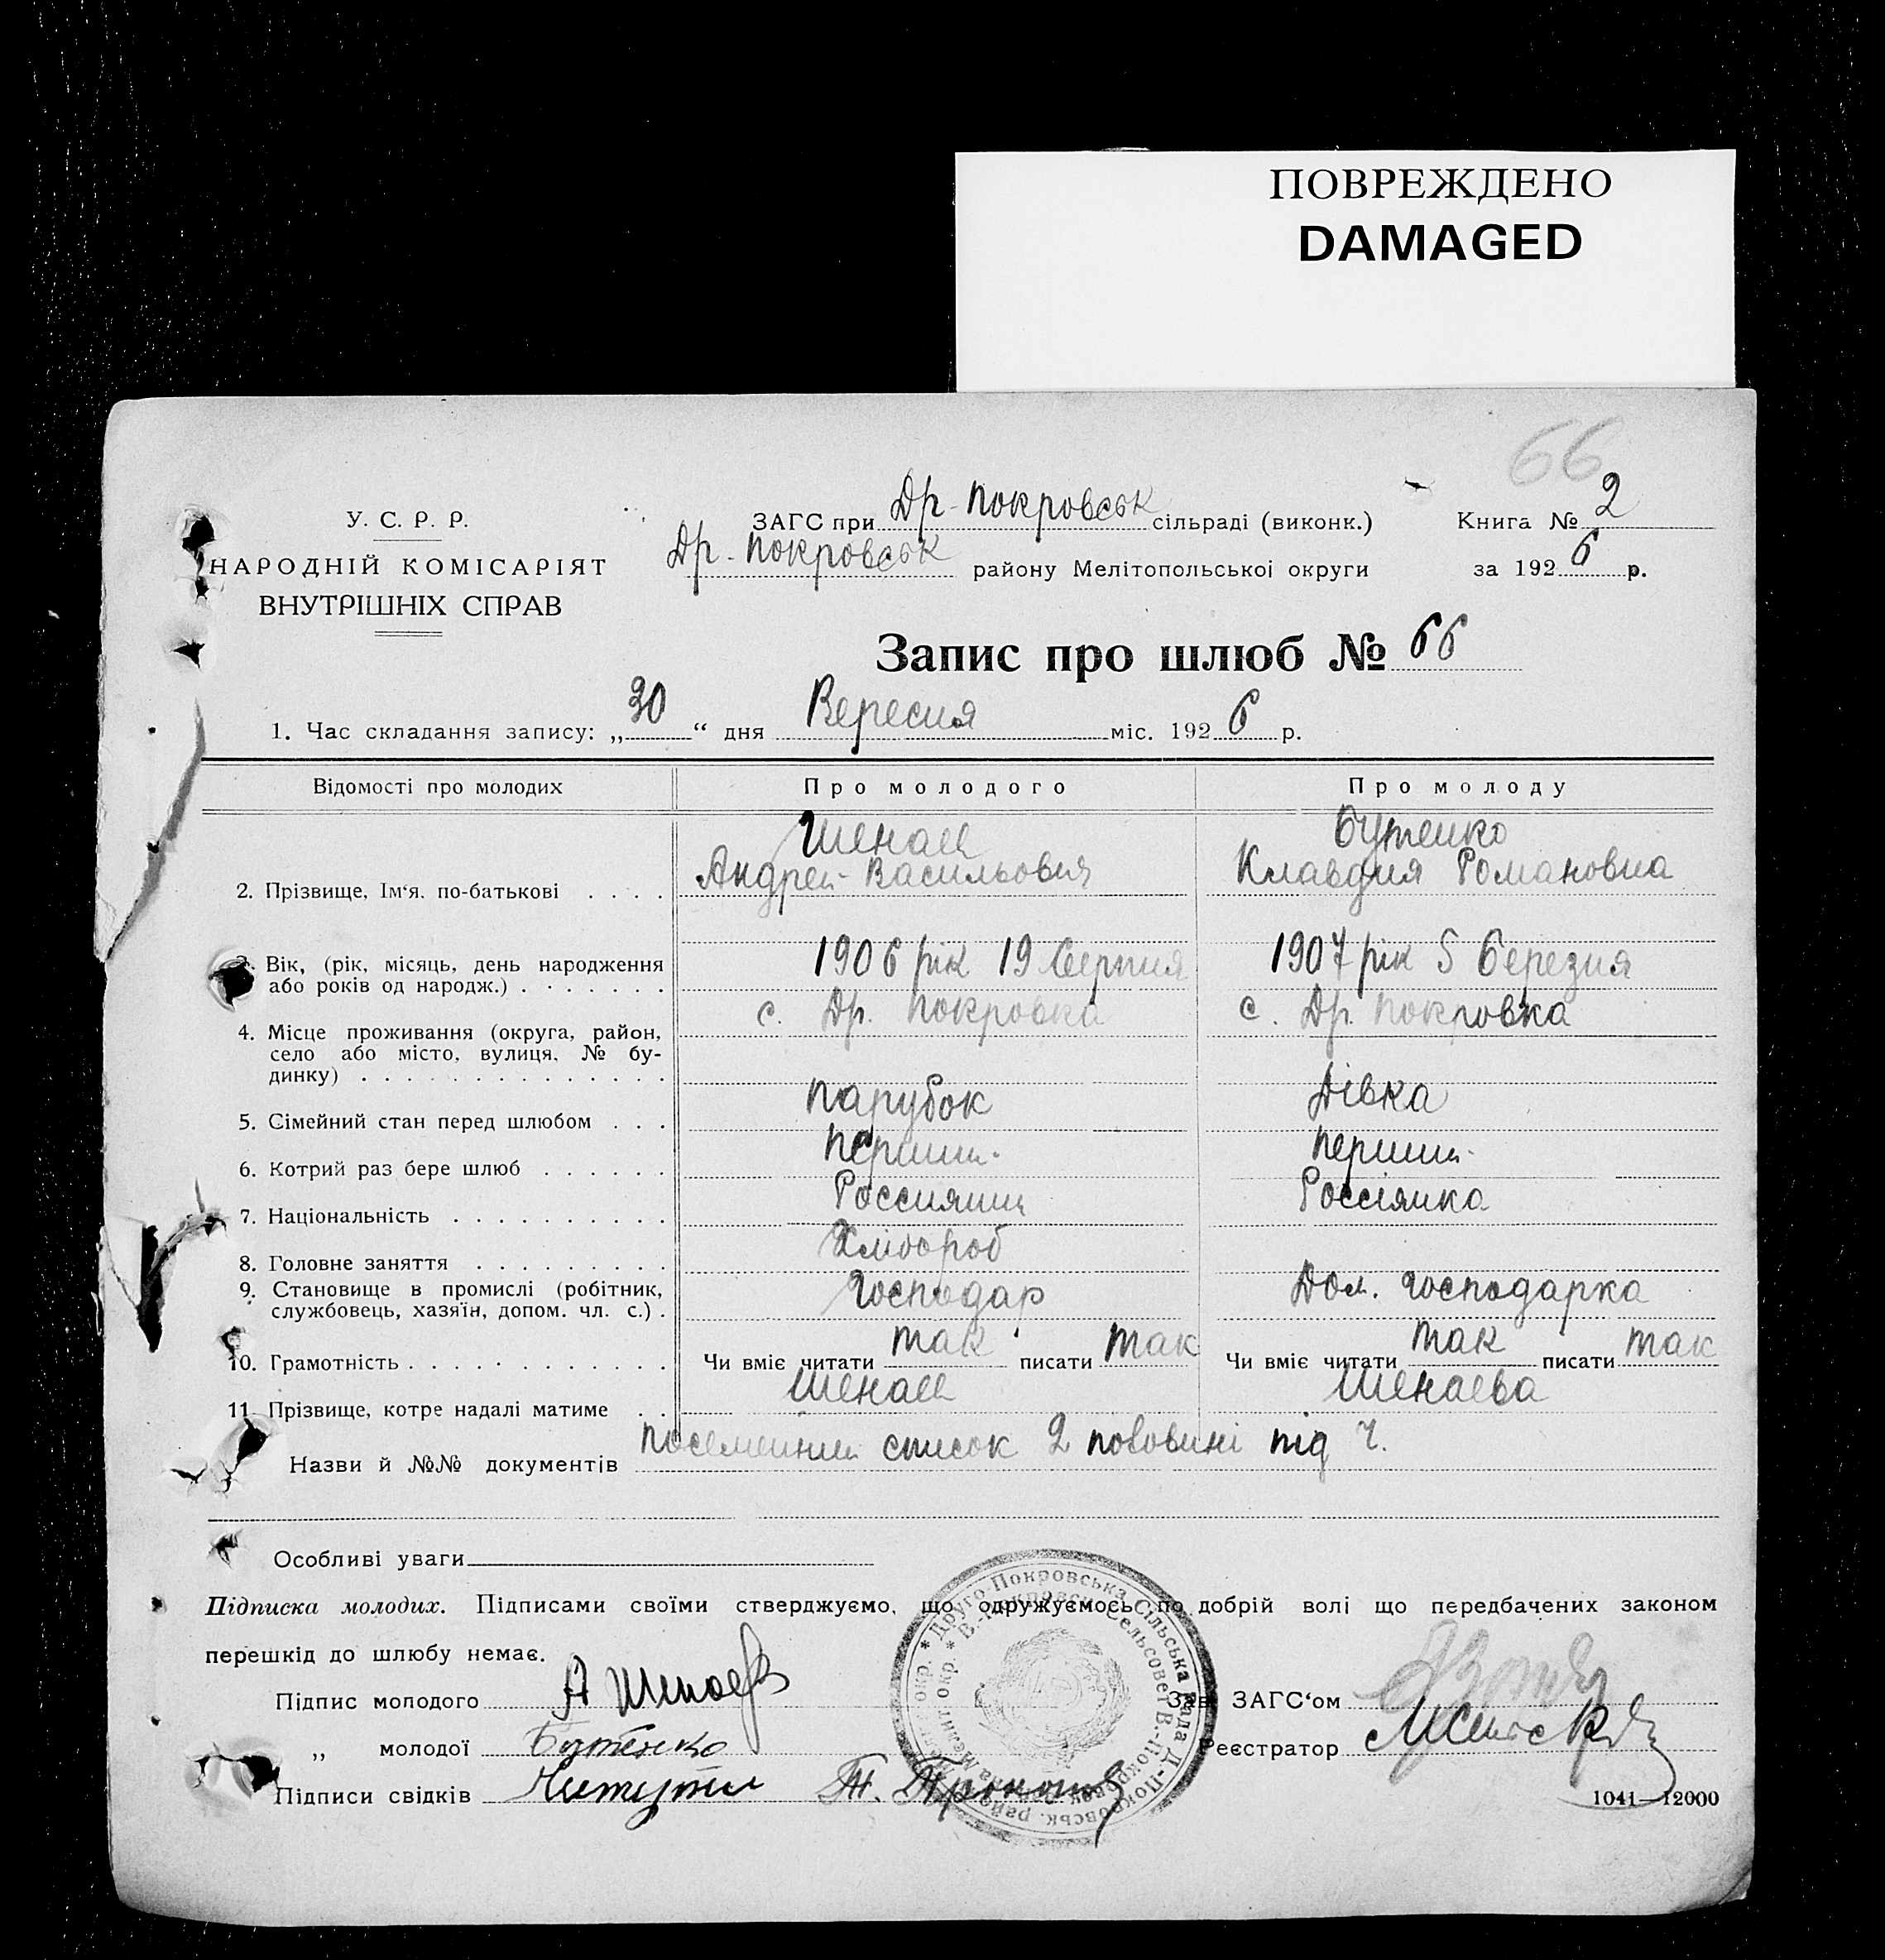 ПОВРЕЖДЕНО
DAMAGED
66
У. С. Р. Р.
НАРОДНІЙ КОМІСАРІЯТ
ВНУТРІШНІХ СПРАВ
ЗАГС при Др-Покровськ сільраді (виконк.)
Др-Покровськ району Мелітопольської округи
Книга № 2
за 1926 р.
Запис про шлюб № 66
1. Час складання запису: „30“ дня Вересня міс. 1926 р.
Відомості про молодих Про молодого Про молоду
2. Прізвище, Ім‘я, по-батькові . . . .
Шенаев
Андрей Васильович
Бутенко
Клавдия Романовна
3. Вік, (рік, місяць, день народження
або років од народж.) . . . . . . .
1906 рік 19 Серпня
1907 рік 5 Березня
4. Місце проживання (округа, район,
село або місто, вулиця, № бу-
динку) . . . . . . . . . . . . . .
с. Др. Покровка
с. Др. Покровка
5. Сімейний стан перед шлюбом . . .
Парубок
Дівка
6. Котрий раз бере шлюб . . . . . .
Перший
Перший
7. Національність . . . . . . . . . .
Россиянин
Россіянка
8. Головне заняття . . . . . . . . .
Хлібороб
9. Становище в промислі (робітник,
службовець, хазяїн, допом. чл. с.) .
Господар
Дом. господарка
10. Грамотність . . . . . . . . . . . .
Чи вміє читати так писати так
Чи вміє читати так писати так
11. Прізвище, котре надалі матиме . .
Шенаев
Шенаева
Назви й №№ документів посемейний список 2 половині під Ч.
Особливі уваги
Підписка молодих. Підписами своїми стверджуємо, що одружуємось по добрій волі що передбачених законом
перешкід до шлюбу немає.
Підпис молодого А Шенаев
Зав. ЗАГС‘ом
„ молодої Бутенко
Реєстратор
Підписи свідків
1041—12000
* Друго-Покровська Сільська Рада Д-Покровськ. район
* В.-Покровск. Сельсовет В.-Покровск.